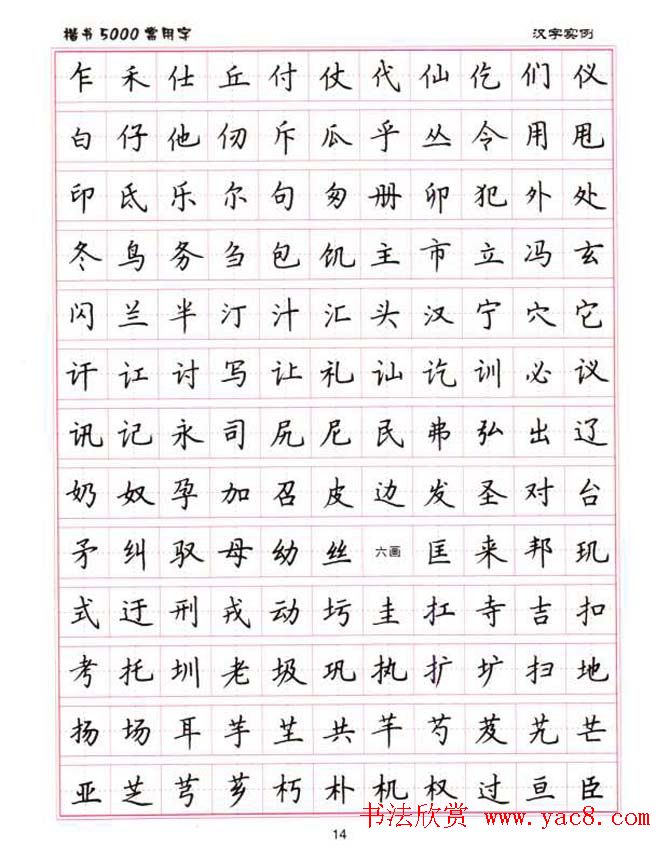 楷书5000常用字 汉字实例
乍 禾 仕 丘 付 仗 代 仙 仡 们 仪
白 仔 他 仞 斥 瓜 乎 丛 令 用 甩
印 氐 乐 尔 句 匆 册 卯 犯 外 处
冬 鸟 务 刍 包 饥 主 市 立 冯 玄
闪 兰 半 汀 汁 汇 头 汉 宁 穴 它
讦 讧 讨 写 让 礼 讪 讫 训 必 议
讯 记 永 司 尻 尼 民 弗 弘 出 辽
奶 奴 孕 加 召 皮 边 发 圣 对 台
矛 纠 驭 母 幼 丝 六画 匡 来 邦 玑
式 迂 刑 戎 动 圬 圭 扛 寺 吉 扣
考 托 圳 老 圾 巩 执 扩 圹 扫 地
扬 场 耳 芋 芏 共 芊 芍 芨 芄 芒
亚 芝 芎 芗 朽 朴 机 权 过 亘 臣
书法欣赏 www.yac8.com
14